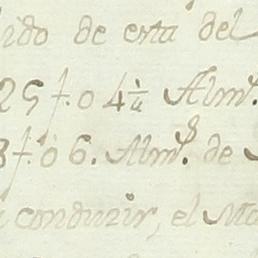 ido de esta del
25 f. o 4 1/4 Alm.s
8 f. o 6. Alm.s de
conduzir, el Mo